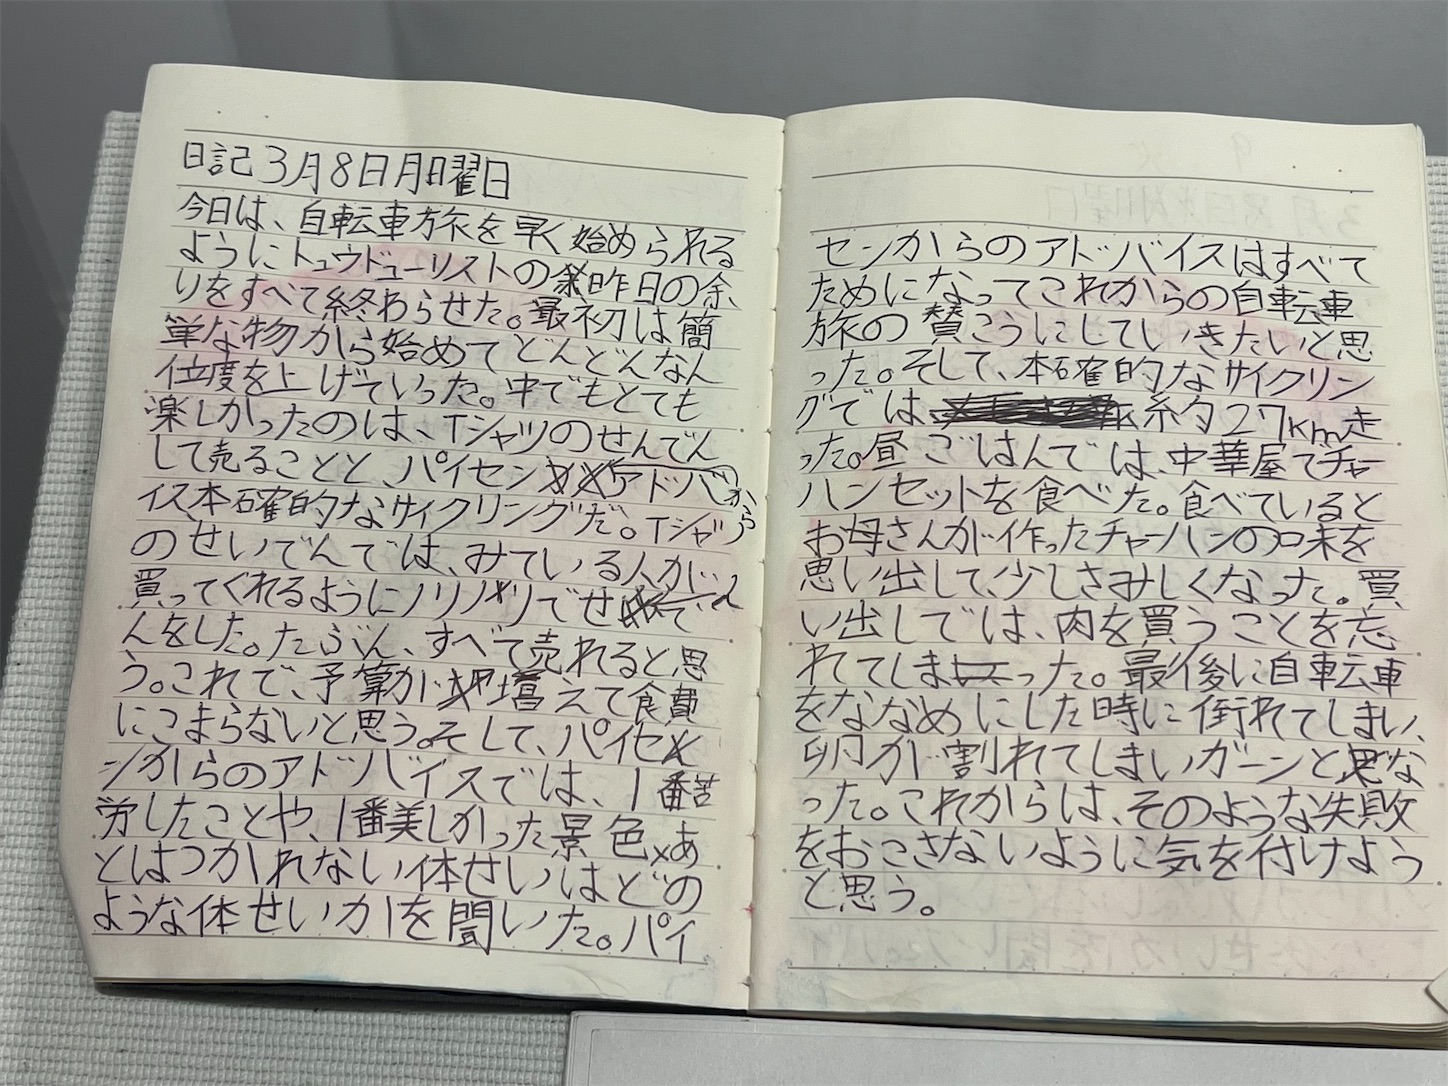 日記3月8日月曜日
今日は、自転車旅を早く始められる
ようにトュウドューリストの昨日の余
りをすべて終わらせた。最初は簡
単な物から始めてどんどんなん
位度を上げていった。中でもとても
楽しかったのは、Tシャツのせんでん
して売ることと、パイセンからアドバ
イス本確的なサイクリングだ。Tシャツ
のせいでんでは、みている人が
買ってくれるようにノリノリでせ
んをした。たぶん、すべて売れると思
う。これで、予算が増えて食費
にこまらないと思う。そして、パイセ
ンからのアドバイスでは、1番苦
労したことや、1番美しかった景色、あ
とはつかれない体せいはどの
ような体せいかを聞いた。パイ
センからのアドバイスはすべて
ためになってこれからの自転車
旅の賛こうにしていきたいと思
った。そして、本確的なサイクリン
グでは、約27km走
った。昼ごはんでは、中華屋でチャー
ハンセットを食べた。食べていると
お母さんが作ったチャーハンの味を
思い出して、少しさみしくなった。買
い出しでは、肉を買うことを忘
れてしまった。最後に自転車
をななめにした時に倒れてしまい、
卵が割れてしまいガーンとな
った。これからは、そのような失敗
をおこさないように気を付けよう
と思う。